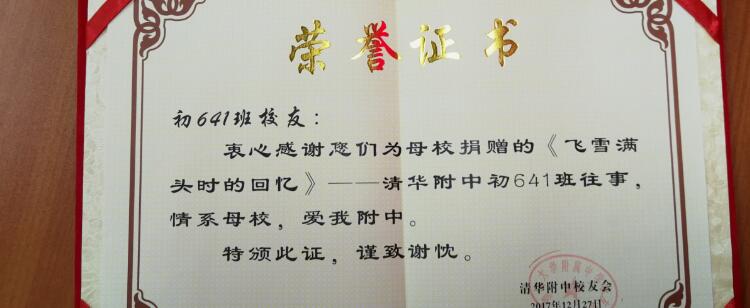 荣誉证书
初641班校友：
衷心感谢您们为母校捐赠的《飞雪满
头时的回忆》——清华附中初641班往事，
情系母校，爱我附中。
特颁此证，谨致谢忱。
清华附中校友会
2017年12月27日